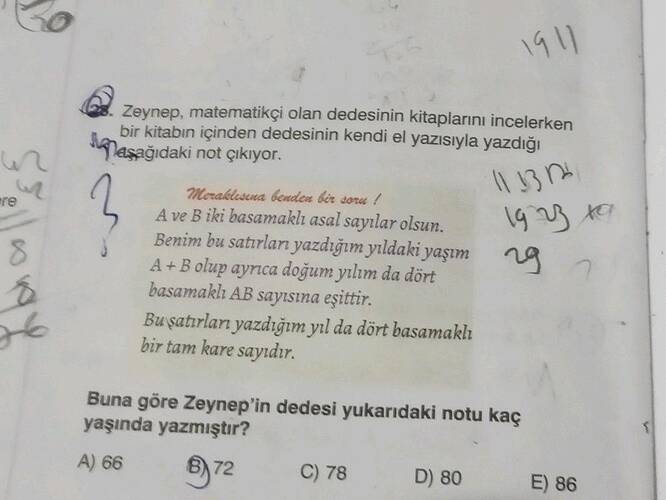 30
1911
28. Zeynep, matematikçi olan dedesinin kitaplarını incelerken
bir kitabın içinden dedesinin kendi el yazısıyla yazdığı
aşağıdaki not çıkıyor.
Meraklısına benden bir soru !
A ve B iki basamaklı asal sayılar olsun.
Benim bu satırları yazdığım yıldaki yaşım
A + B olup ayrıca doğum yılım da dört
basamaklı AB sayısına eşittir.
Bu satırları yazdığım yıl da dört basamaklı
bir tam kare sayıdır.
11 13 17
19 23
29
?
re
8
8
Buna göre Zeynep'in dedesi yukarıdaki notu kaç
yaşında yazmıştır?
A) 66 B) 72 C) 78 D) 80 E) 86